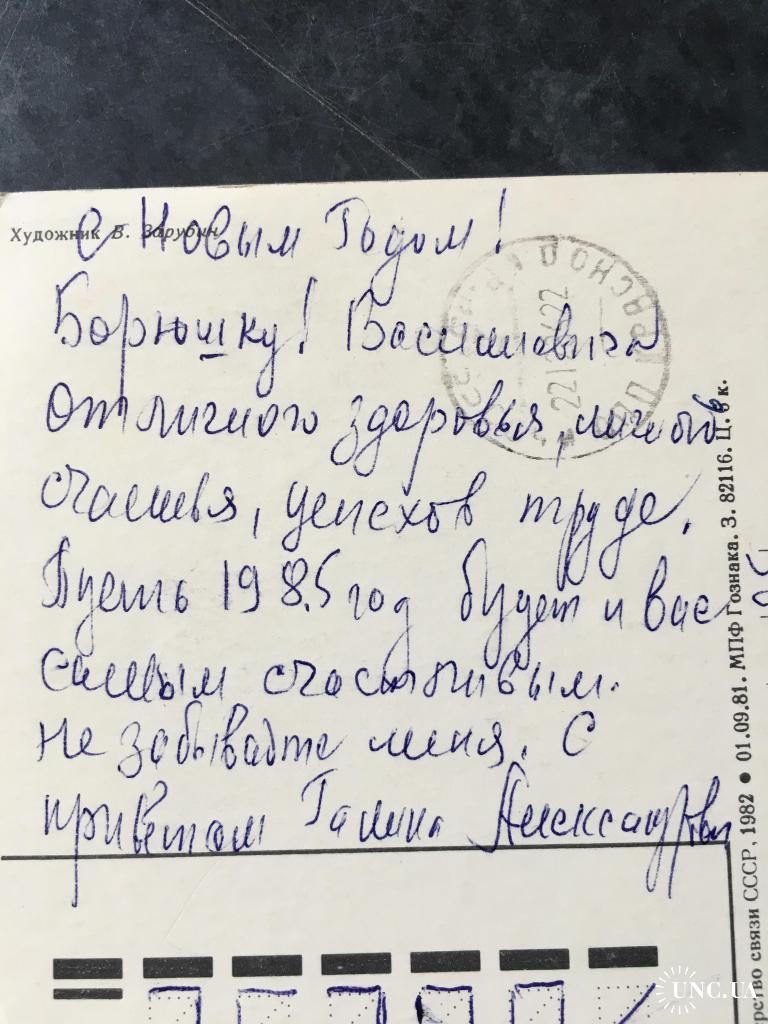 Художник В. Зарубин
С Новым Годом!
Борюшку! Васильевича
отличного здоровья, личного
счастья, успехов труде.
Пусть 1985 год будет и вас
самым счастливым.
не забывайте меня. С
приветом Галина Александровна
рство связи СССР, 1982 ● 01.09.81. МПФ Гознака. З. 82116. Ц. 6 к.
UNC.UA